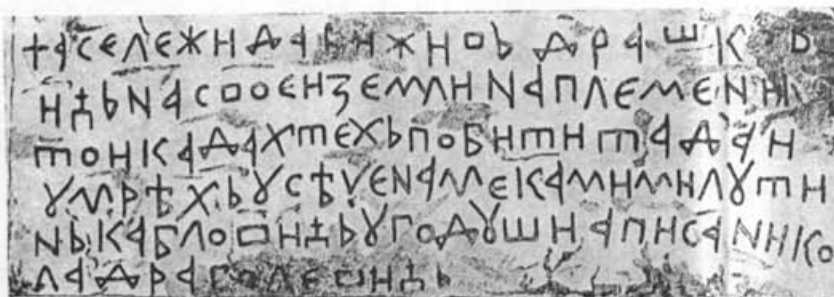 +АСЕЛЕЖИДАБИЖИВЬ ДРАШКОВ
ИЋЬНАСВОЕИЗЕМЛИНАПЛЕМЕНИ
ТОИКАДАХТЕХЬПОБИТИТАДАИ
ꙊМРѢХЬꙊСѢЧЕНАМЕКАМИМИЛꙊТИ
НЬКАБЛОВИЋЬꙊГОДꙊШИАПИСАНИКО
ЛАДРАГОЛЕВИЋЬ